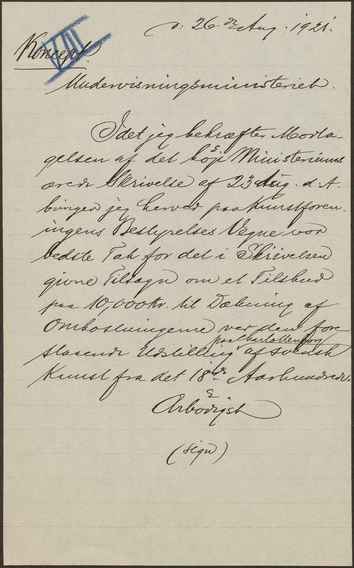 d. 26de Aug. 1921.
Koncept.
VIII
Undervisningsministeriet.
Idet jeg bekræfter Modta-
gelsen af det høje Ministeriums
ærede Skrivelse af 23 Aug. d. A.
bringer jeg herved paa Kunstforen-
ingens Bestyrelses Vegne vor
bedste Tak for det i Skrivelsen
givne Tilsagn om et Tilskud
paa 10,000 Kr. til Dækning af
Omkostningerne ved den fore-
staaende Udstilling paa Charlottenborg af svensk
Kunst fra det 18de Aarhundrede
Ærbødigst
(sign)